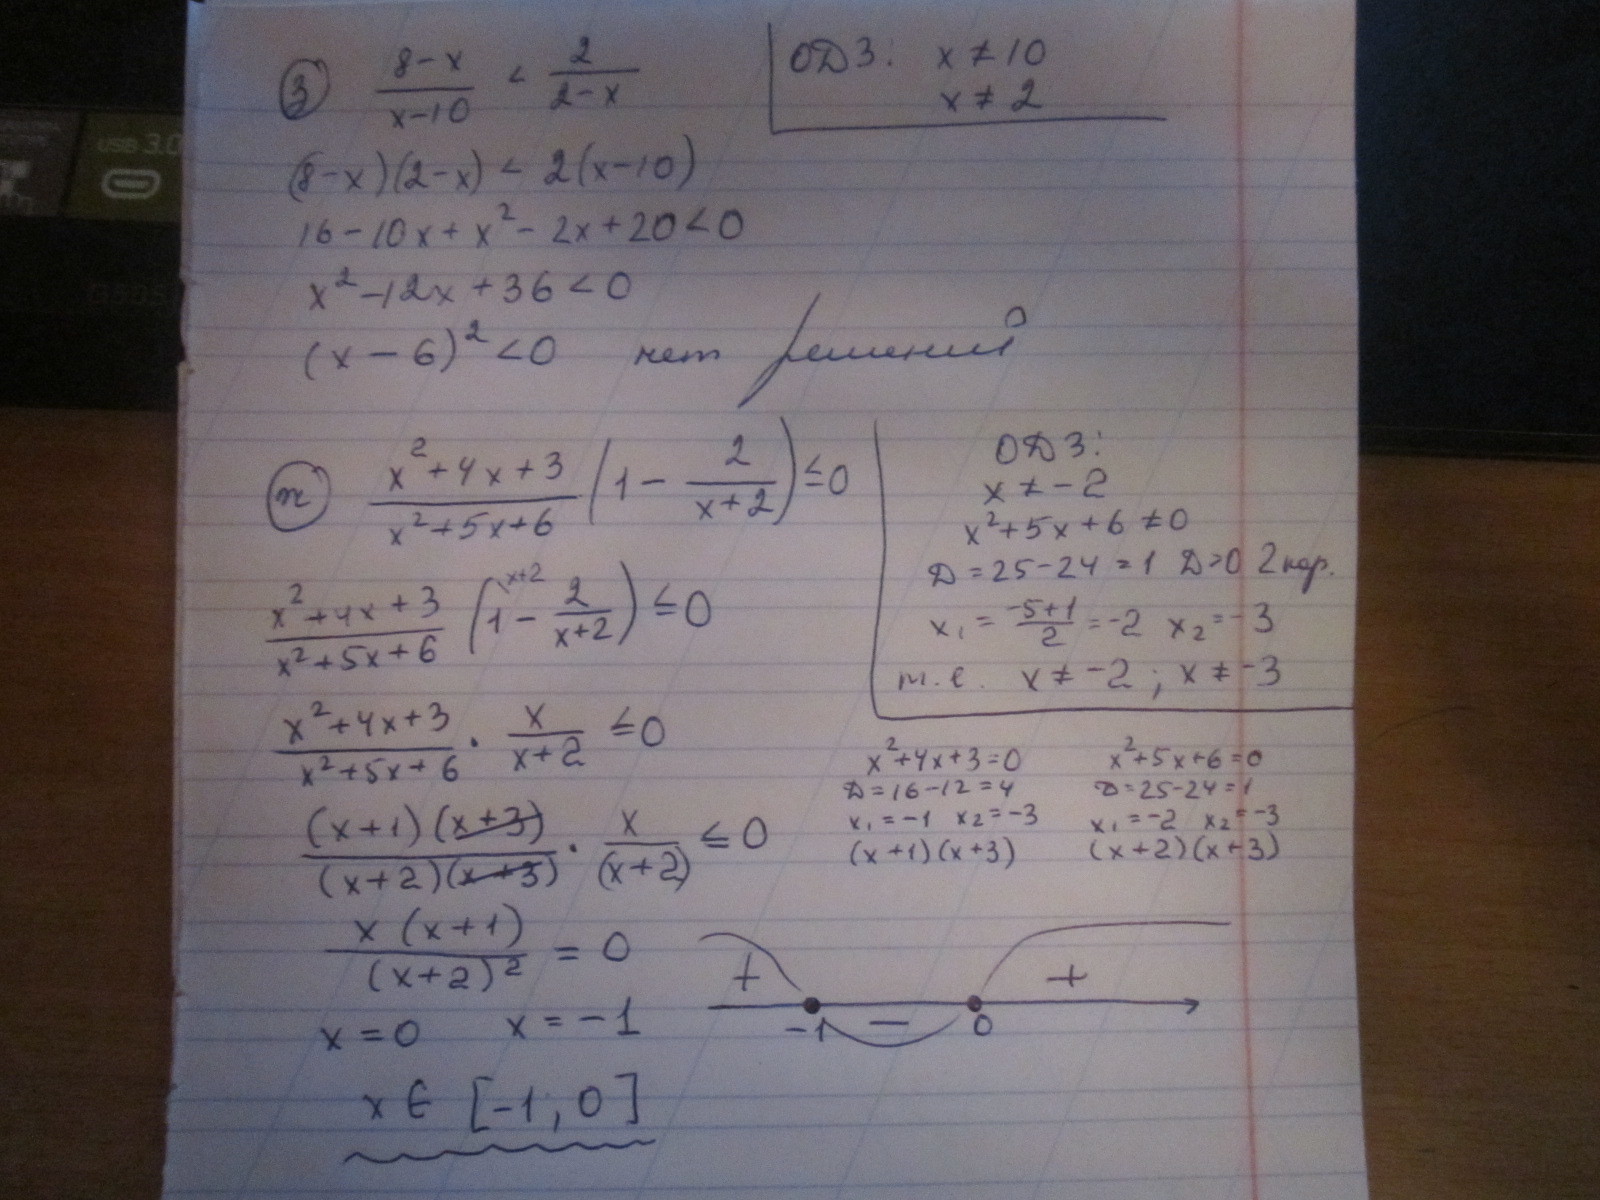 USB 3.0
з) (8-x)/(x-10) < 2/(2-x)
ОДЗ: x ≠ 10
x ≠ 2
(8-x)(2-x) < 2(x-10)
16-10x+x²-2x+20<0
x²-12x+36<0
(x-6)²<0 нет решений
(x²+4x+3)/(x²+5x+6) (1 - 2/(x+2)) ≤ 0
ОДЗ:
x ≠ -2
x²+5x+6 ≠ 0
Д = 25-24 = 1 Д>0 2 кор.
x₁ = (-5+1)/2 = -2 x₂ = -3
т.е. x ≠ -2 ; x ≠ -3
(x²+4x+3)/(x²+5x+6) (1^(x+2) - 2/(x+2)) ≤ 0
(x²+4x+3)/(x²+5x+6) · x/(x+2) ≤ 0
x²+4x+3=0
Д=16-12=4
x₁=-1 x₂=-3
(x+1)(x+3)
x²+5x+6=0
Д=25-24=1
x₁=-2 x₂=-3
(x+2)(x+3)
(x+1)(x+3)/((x+2)(x+3)) · x/(x+2) ≤ 0
x(x+1)/(x+2)² = 0
x=0 x=-1
+ - +
-1 0
x ∈ [-1; 0]